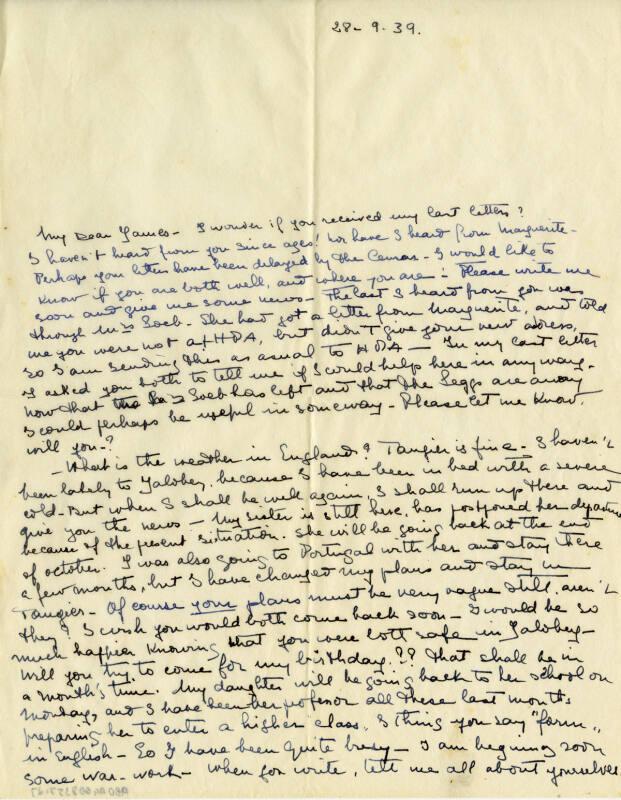 28-9-39.
My Dear James- I wonder if you received my last letters?
I haven't heard from you since ages! Nor have I heard from Marguerite-
Perhaps your letters have been delayed by the Censor- I would like to
know if you are both well, and where you are! Please write me
soon and give me some news- The last I heard from you was
through Mrs Loeb. She had got a letter from Marguerite, and told
me you were not at HDA, but didn't give your new adress,
so I am sending this as usual to HDA- In my last letter
I asked you both to tell me if I could help here in any way-
now that Loeb has left and that the Leggs are away
I could perhaps be useful in some way- Please let me know.
will you-?
- What is the weather in England? Tangier is fine- I haven't
been lately to Jalobey, because I have been in bed with a severe
cold- But when I shall be well again, I shall run up there and
give you the news- My sister is still here, has postponed her departure
because of the present situation. She will be going back at the end
of october. I was also going to Portugal with her and stay there
a few months, but I have changed my plans and stay in
Tangier- Of course your plans must be very vague still, aren't
they? I wish you would both come back soon- I would be so
much happier knowing that you were both safe in Jalobey-
Will you try to come for my birthday?? That shall be in
a month's time. My daughter will be going back to her school on
Monday, and I have been her profesor all these last months
preparing her to enter a higher class, I thing you say "form"
in English- So I have been quite busy- I am begining soon
some war-work- When you write, tell me all about yourselves